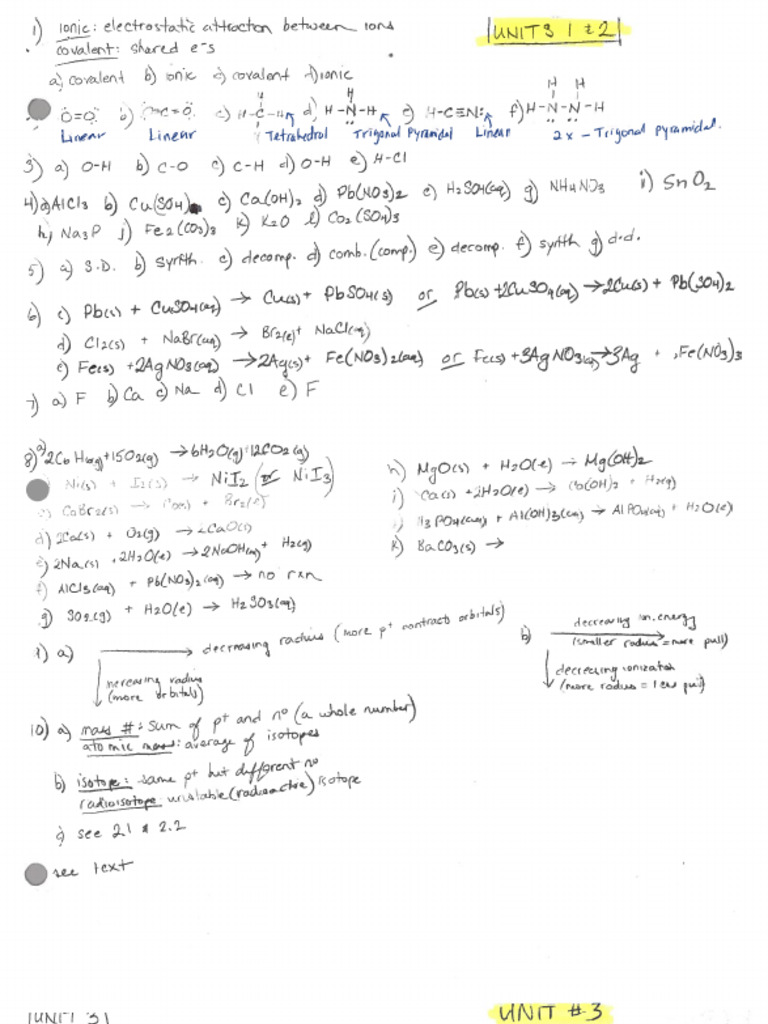 UNITS 1 & 2
1) ionic: electrostatic attraction between ions
covalent: shared e-s
a) covalent b) ionic c) covalent d) ionic
O=O b) O=C=O c) H-C-H d) H-N-H e) H-C≡N: f) H-N-N-H
Linear Linear Tetrahedral Trigonal Pyramidal Linear 2x - Trigonal pyramidal.
3) a) O-H b) C-O c) C-H d) O-H e) H-Cl
4) a) AlCl3 b) Cu(SO4) c) Ca(OH)2 d) Pb(NO3)2 e) H2SO4(aq) g) NH4NO3 i) SnO2
h) Na3P j) Fe2(CO3)3 k) K2O l) Co2(SO4)3
5) a) S.D. b) synth. c) decomp. d) comb. (comp.) e) decomp. f) synth g) d.d.
6) c) Pb(s) + CuSO4(aq) → Cu(s) + PbSO4(s) or Pb(s) + 2CuSO4(aq) → 2Cu(s) + Pb(SO4)2
d) Cl2(s) + NaBr(aq) → Br2(l) + NaCl(aq)
e) Fe(s) + 2AgNO3(aq) → 2Ag(s) + Fe(NO3)2(aq) or Fe(s) + 3AgNO3(aq) → 3Ag + Fe(NO3)3
7) a) F b) Ca c) Na d) Cl e) F
8) a) 2C6H6(g) + 15O2(g) → 6H2O(g) + 12CO2(g)
Ni(s) + I2(s) → NiI2 (or NiI3)
CoBr2(s) → Co(s) + Br2(l)
d) 2Ca(s) + O2(g) → 2CaO(s)
e) 2Na(s) + 2H2O(l) → 2NaOH(aq) + H2(g)
f) AlCl3(aq) + Pb(NO3)2(aq) → no rxn
g) SO2(g) + H2O(l) → H2SO3(aq)
h) MgO(s) + H2O(l) → Mg(OH)2
i) Ca(s) + 2H2O(l) → Ca(OH)2 + H2(g)
H3PO4(aq) + Al(OH)3(aq) → AlPO4(aq) + H2O(l)
k) BaCO3(s) →
a) → decreasing radius (more p+ contracts orbitals)
increasing radius
(more orbitals)
b) decreasing ion. energy
(smaller radius = more pull)
decreasing ionization
(more radius = less pull)
10) a) mass #: sum of p+ and n° (a whole number)
atomic mass: average of isotopes
b) isotope: same p+ but different n°
radioisotope: unstable (radioactive) isotope
c) see 2.1 & 2.2
see text
UNIT 3
UNIT #3